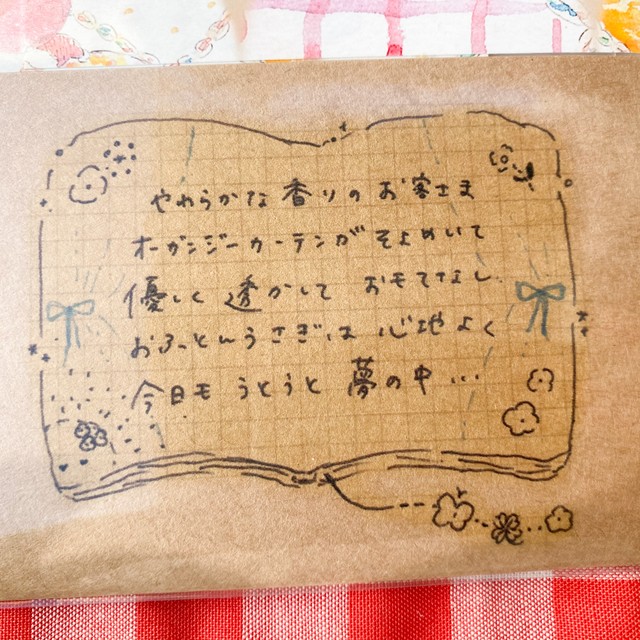 やわらかな香りのお客さま
オーガンジーカーテンがそよめいて
優しく透かして おもてなし
おふとんうさぎは 心地よく
今日も うとうと 夢の中…